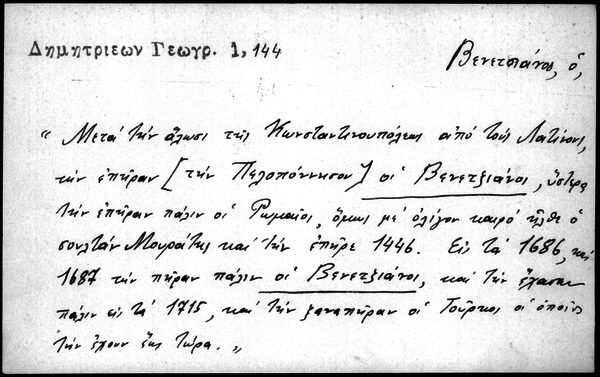 Δημητριεων Γεωγρ. 1, 144
Βενετσιάνος, ὁ,
« Μετά την ἅλωσι της Κωνσταντινουπόλεως από τους Λατίνους,
την ἐπῆραν [την Πελοπόννησον] οἱ Βενετζιάνοι, ὕστερα
την ἐπῆραν πάλιν οἱ Ρωμαῖοι, ὅμως μέ ὀλίγον καιρό ἦλθε ὁ
σουλτάν Μουράτης και την ἐπῆρε 1446. Εις τά 1686, και
1687 την πῆραν πάλιν οἱ Βενετζιάνοι, και την ἔχασαν
πάλιν εις τά 1715, και την ξαναπῆραν οἱ Τοῦρκοι οἱ ὁποῖοι
την ἔχουν ἕως τώρα. „